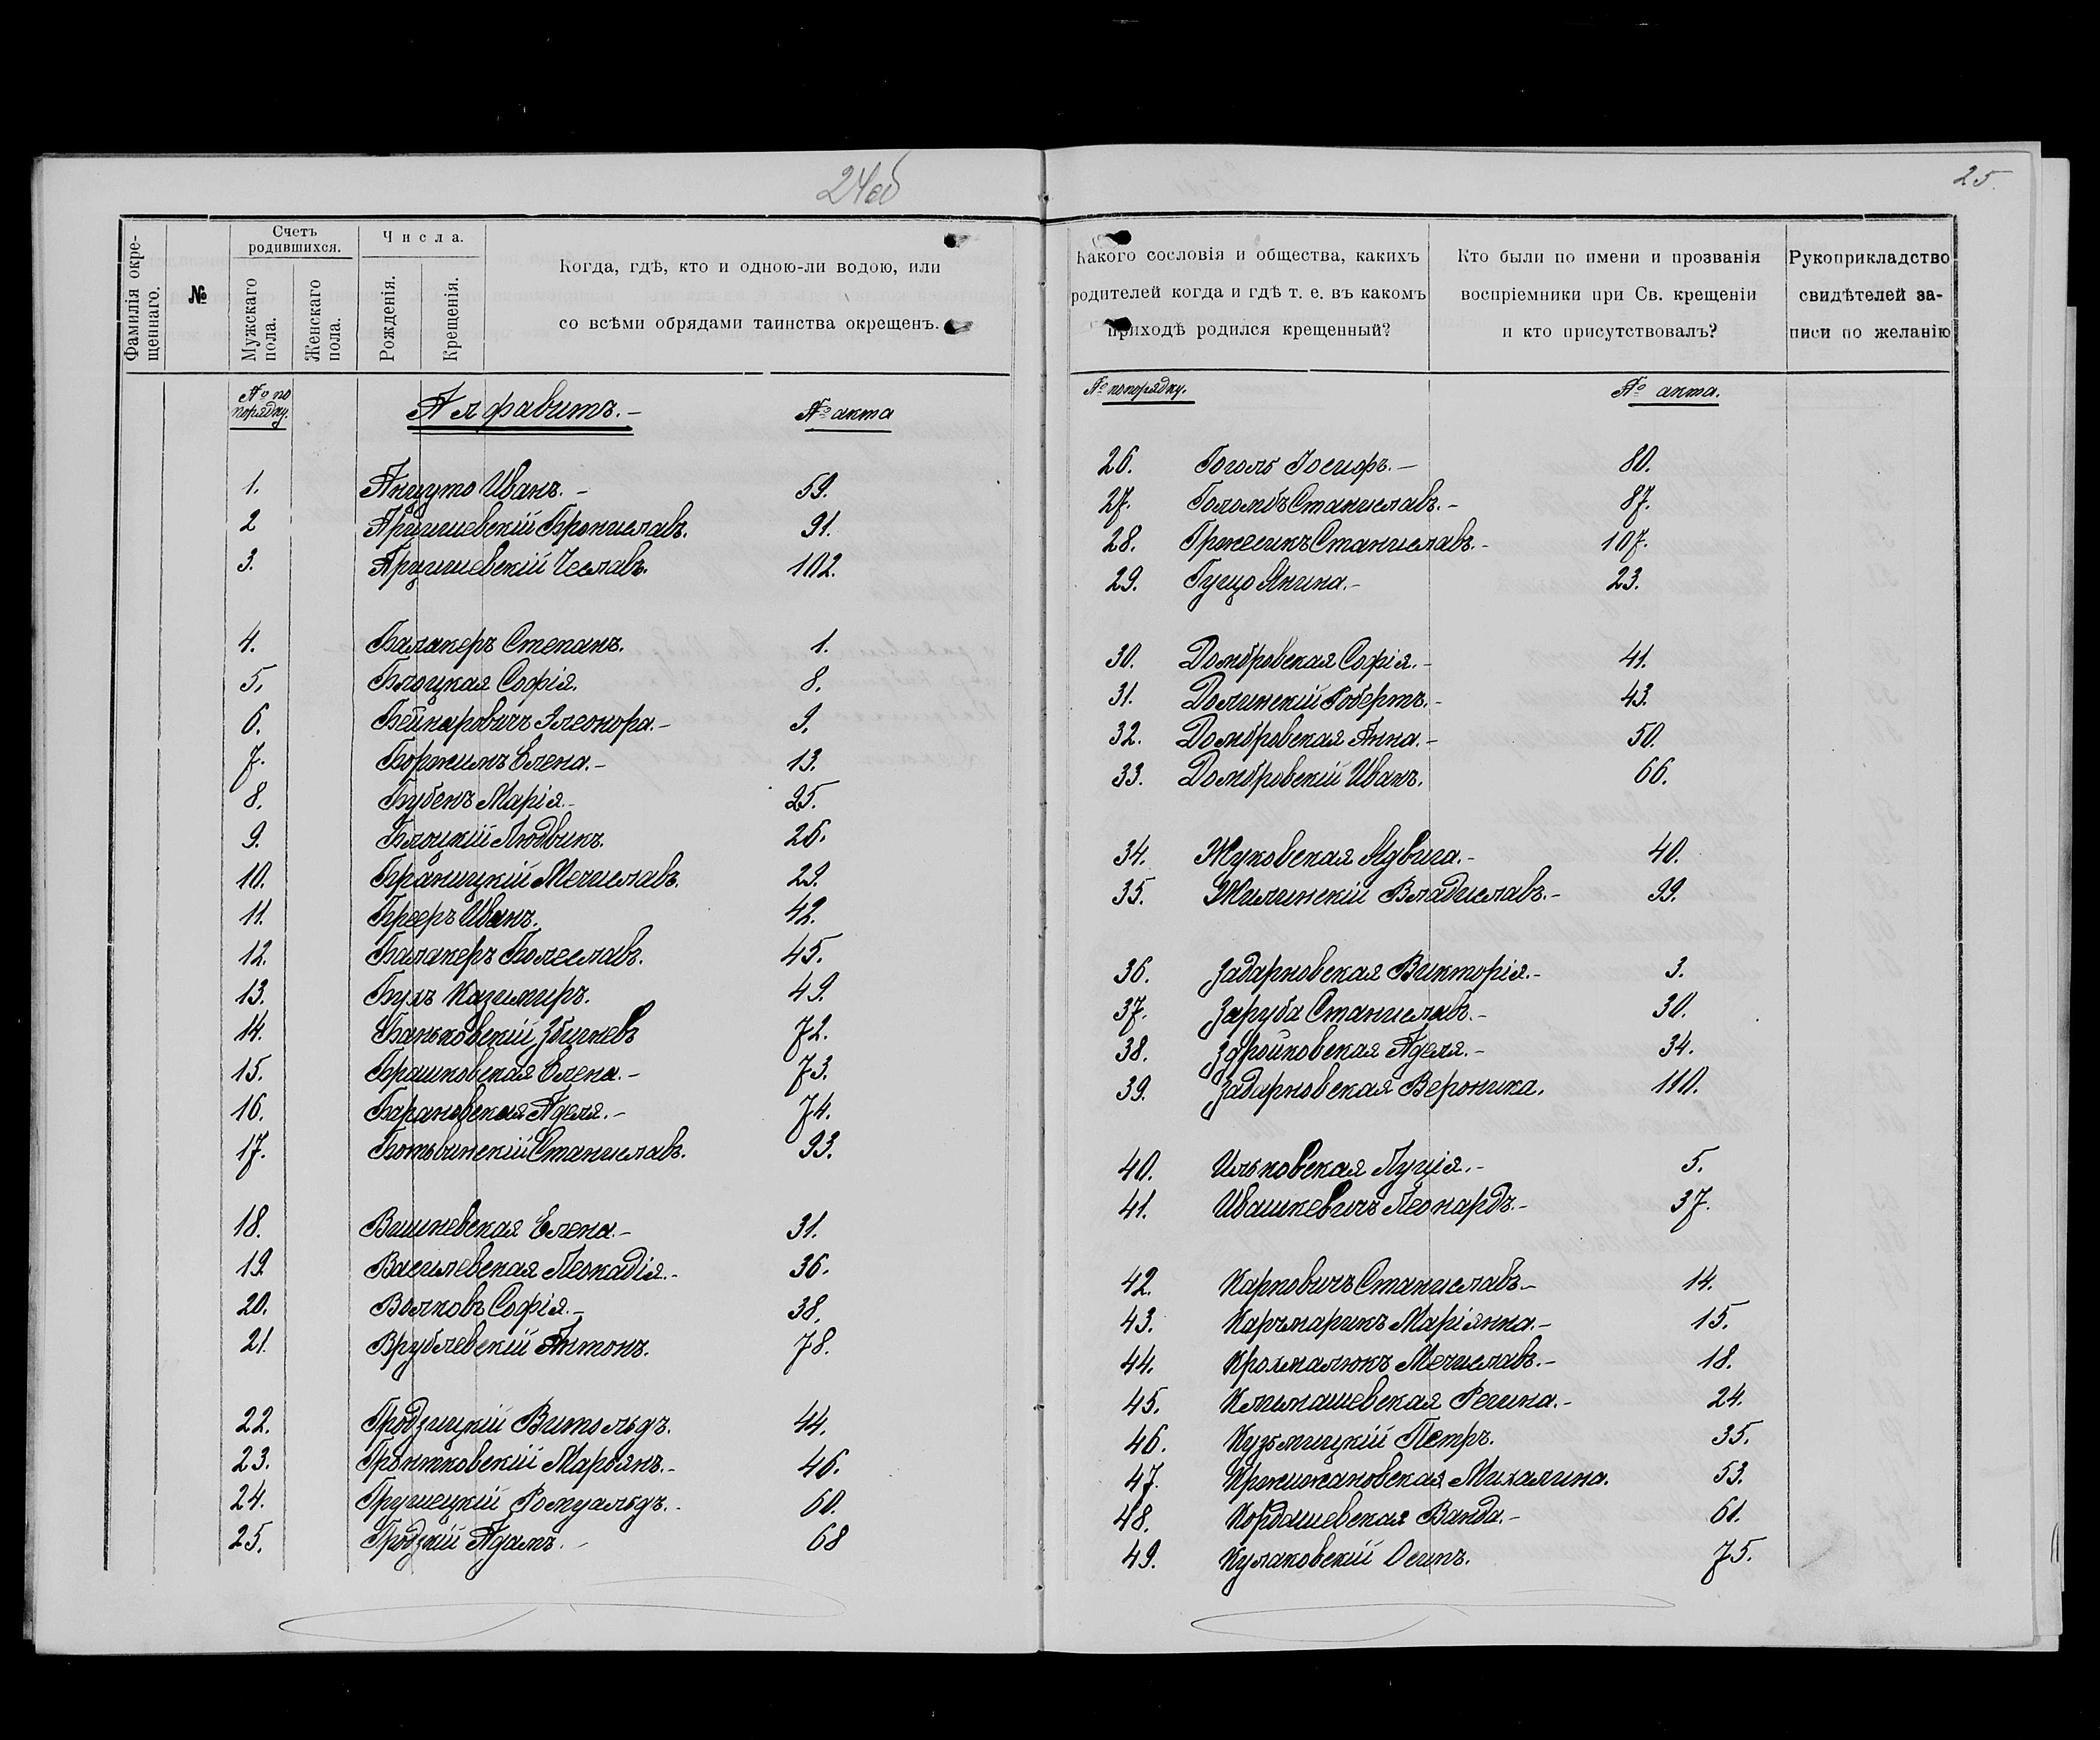 24об
Фамилія окре-
щеннаго.
№
Счетъ
родившихся.
Мужскаго
пола.
Женскаго
пола.
Числа.
Рожденія.
Крещенія.
Когда, гдѣ, кто и одною-ли водою, или
со всѣми обрядами таинства окрещенъ.
№ по
порядку.
Алфавитъ.-
№ акта
1. Анцуто Иванъ.- 59.
2 Арцишевскій Брониславъ. 91.
3. Арцишевскій Чеславъ. 102.
4. Балакеръ Степанъ. 1.
5. Блоцкая Софія. 8.
6. Бейнаровичъ Элеонора.- 9.
7. Боржимъ Елена.- 13.
8. Бубенъ Марія.- 25.
9. Блоцкій Людвикъ. 26.
10. Браницкій Мечиславъ. 29.
11. Брееръ Иванъ. 42.
12. Балакеръ Болеславъ. 45.
13. Буль Казимиръ. 49.
14. Баньковскій Збигневъ 72.
15. Брашковская Елена.- 73.
16. Барановская Аделя.- 74.
17. Ботвинскій Станиславъ. 93.
18. Вишневская Елена.- 31.
19. Василевская Леокадія.- 36.
20. Волковъ Софія.- 38.
21. Врублевскій Антонъ. 78.
22. Гродзицкій Витольдъ. 44.
23. Гронтковскій Марьянъ.- 46.
24. Грушецкій Ромуальдъ.- 60.
25. Гродзкій Адамъ.- 68
25.
Какого сословія и общества, какихъ
родителей когда и гдѣ т. е. въ какомъ
приходѣ родился крещенный?
Кто были по имени и прозванія
воспріемники при Св. крещеніи
и кто присутствовалъ?
Рукоприкладство
свидѣтелей за-
писи по желанію
№ по порядку.
№ акта.
26. Гоголь Іосифъ.- 80.
27. Голомбъ Станиславъ.- 87.
28. Гржесикъ Станиславъ.- 107.
29. Гуцо Янина.- 23.
30. Домбровская Софія.- 41.
31. Долинскій Робертъ.- 43.
32. Домбровская Анна.- 50.
33. Домбровскій Иванъ. 66.
34. Жуковская Ядвига.- 40.
35. Жилинскій Владиславъ.- 99.
36. Задарновская Викторія.- 3.
37. Заруба Станиславъ.- 30.
38. Здройковская Аделя.- 34.
39. Задарновская Вероника. 110.
40. Ильковская Луція.- 5.
41. Ивашкевичъ Леонардъ.- 37.
42. Карповичъ Станиславъ.- 14.
43. Карчмарикъ Маріянна.- 15.
44. Крохмалюкъ Мечиславъ.- 18.
45. Климашевская Регина.- 24.
46. Кузьмицкій Петръ. 35.
47. Кржижановская Михалина. 53.
48. Кордашевская Ванда.- 61.
49. Кулаковскій Осипъ. 75.